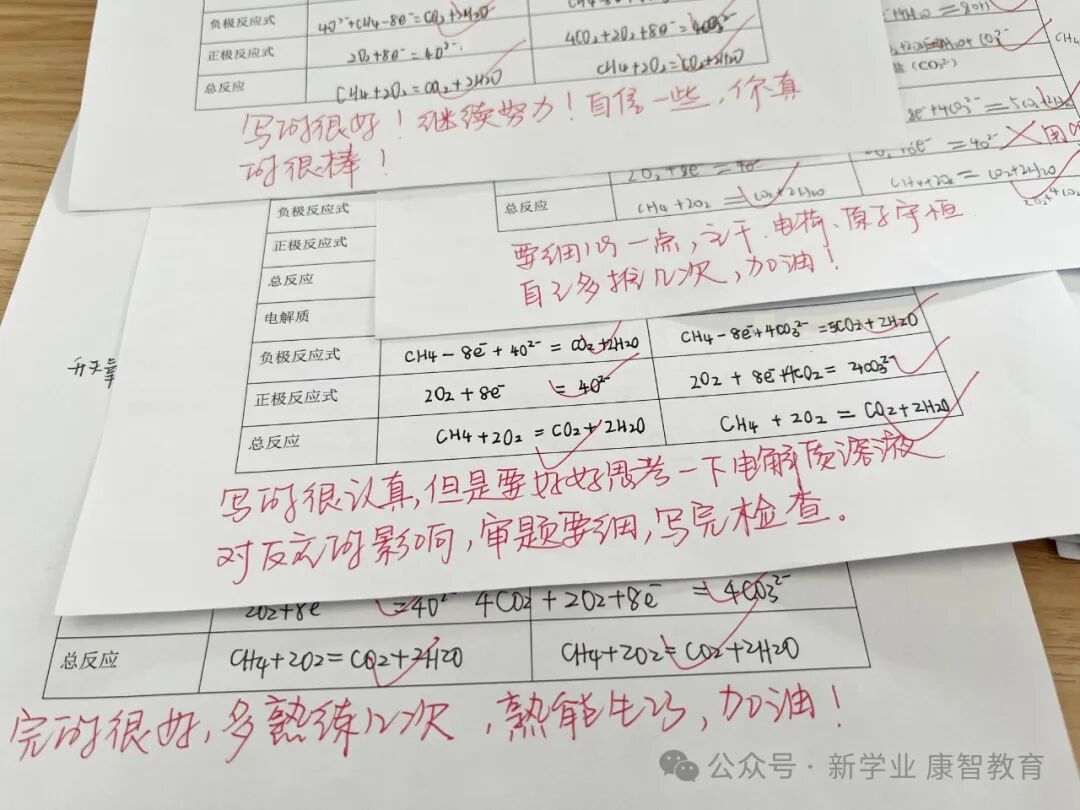 负极反应式 4O²⁻+CH4-8e⁻=CO2+2H2O
正极反应式 2O2+8e⁻=4O²⁻ 4CO2+2O2+8e⁻=4CO3²⁻
总反应 CH4+2O2=CO2+2H2O CH4+2O2=CO2+2H2O
写的很好！继续努力！自信一些，你真
的很棒！
(CO3²⁻)
8e⁻+4CO3²⁻=5CO2+2H2O
2O2+8e⁻=4O²⁻
=4O²⁻
总反应 CH4+2O2=CO2+2H2O CH4+2O2=CO2+2H2O
要细心一点，主干、电荷、原子守恒
自己多推几次，加油！
负极反应式
正极反应式
总反应
电解质
负极反应式 CH4-8e⁻+4O²⁻=CO2+2H2O CH4-8e⁻+4CO3²⁻=5CO2+2H2O
正极反应式 2O2+8e⁻=4O²⁻ 2O2+8e⁻+4CO2=24CO3²⁻
总反应 CH4+2O2=CO2+2H2O CH4+2O2=CO2+2H2O
写的很认真，但是要好好思考一下电解质溶液
对反应的影响，审题要细，写完检查。
2O2+8e⁻=4O²⁻ 4CO2+2O2+8e⁻=4CO3²⁻
总反应 CH4+2O2=CO2+2H2O CH4+2O2=CO2+2H2O
完的很好，多熟练几次，熟能生巧，加油！
公众号·新学业 康智教育